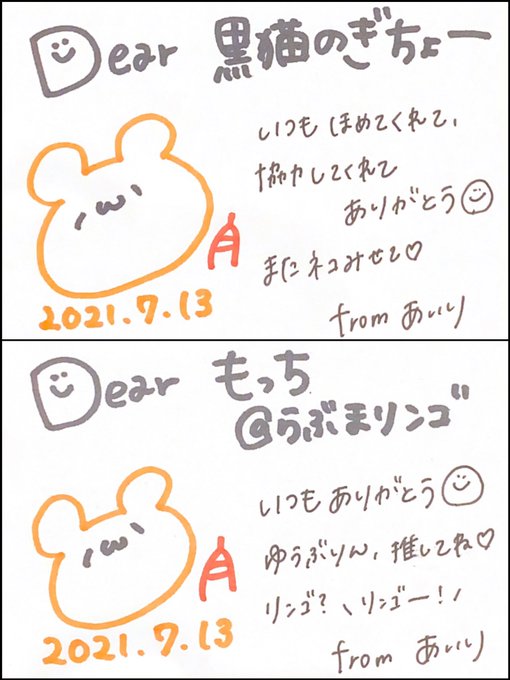 Dear 黒猫のぎちょー
いつもほめてくれて、
協力してくれて
ありがとう
またネコみせて♡
2021.7.13
from あいり
Dear もっち
@らぶまリンゴ
いつもありがとう
ゆうぶりん、推してね♡
リンゴ?＼リンゴー!／
2021.7.13
from あいり